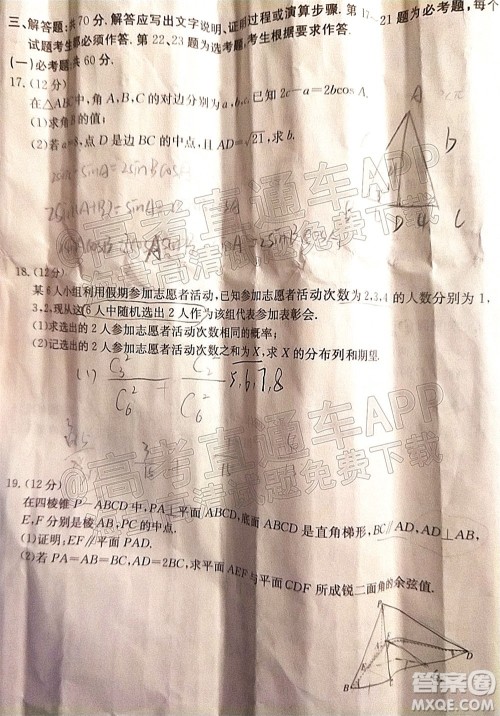 三、解答题:共70分. 解答应写出文字说明、证明过程或演算步骤. 第17~21题为必考题,每个
试题考生都必须作答. 第22、23题为选考题,考生根据要求作答.
(一)必考题:共60分.
17.(12分)
在△ABC中,角A,B,C的对边分别为a,b,c.已知2c-a=2bcos A.
(1)求角B的值;
(2)若a=8,点D是边BC的中点,且AD=√21,求b.
A
b
D 4 C
18.(12分)
某6人小组利用假期参加志愿者活动,已知参加志愿者活动次数为2,3,4的人数分别为1,
3,2,现从这6人中随机选出2人作为该组代表参加表彰会.
(1)求选出的2人参加志愿者活动次数相同的概率;
(2)记选出的2人参加志愿者活动次数之和为X,求X的分布列和期望.
(1) C₃²/C₆² C₂/C₆² 5,6,7,8
@高考直通车APP
高清试题免费下载
19.(12分)
在四棱锥P-ABCD中,PA⊥平面ABCD,底面ABCD是直角梯形,BC∥AD,AD⊥AB,
E,F分别是棱AB,PC的中点.
(1)证明:EF∥平面PAD.
(2)若PA=AB=BC,AD=2BC,求平面AEF与平面CDF所成锐二面角的余弦值.
P
B
C
D
答案圈
MXQE.COM